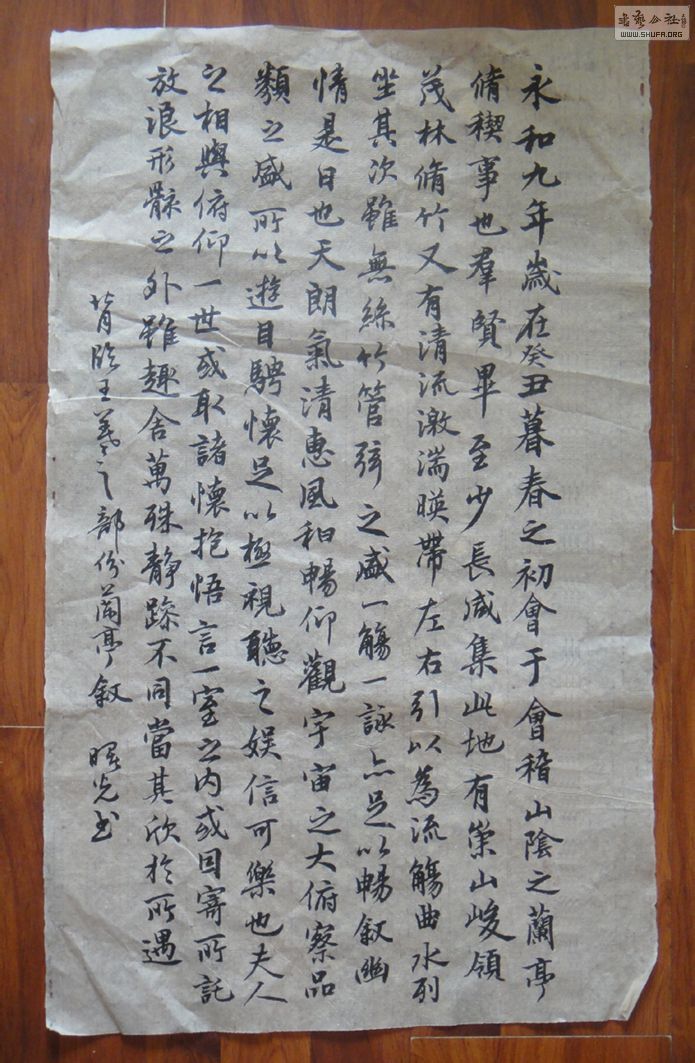 永和九年歲在癸丑暮春之初會于會稽山陰之蘭亭
脩稧事也羣賢畢至少長咸集此地有崇山峻領
茂林脩竹又有清流激湍暎帶左右引以為流觴曲水列
坐其次雖無絲竹管弦之盛一觴一詠亦足以暢敘幽
情是日也天朗氣清惠風和暢仰觀宇宙之大俯察品
類之盛所以遊目騁懷足以極視聽之娛信可樂也夫人
之相與俯仰一世或取諸懷抱悟言一室之內或因寄所託
放浪形骸之外雖趣舍萬殊静躁不同當其欣於所遇
背臨王羲之部份蘭亭敘 曙光书
WWW.SHUFA.ORG